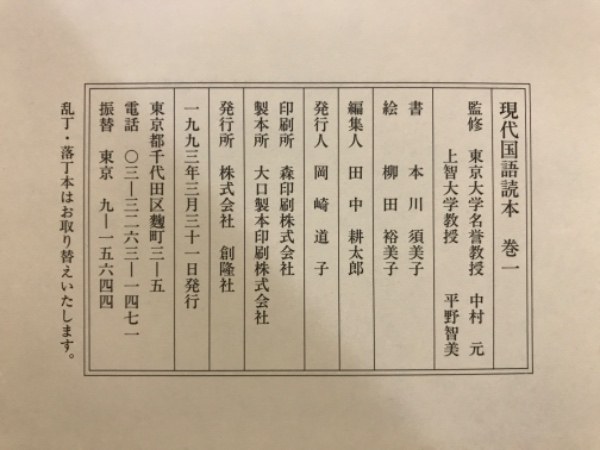 現代国語読本 巻一
監修 東京大学名誉教授 中村 元
上智大学教授 平野智美
書 本川須美子
絵 柳田裕美子
編集人 田中耕太郎
発行人 岡崎道子
印刷所 森印刷株式会社
製本所 大口製本印刷株式会社
発行所 株式会社 創隆社
一九九三年三月三十一日発行
東京都千代田区麴町三―五
電話 〇三―三二六三―一四七一
振替 東京 九―一五六四四
乱丁・落丁本はお取り替えいたします。